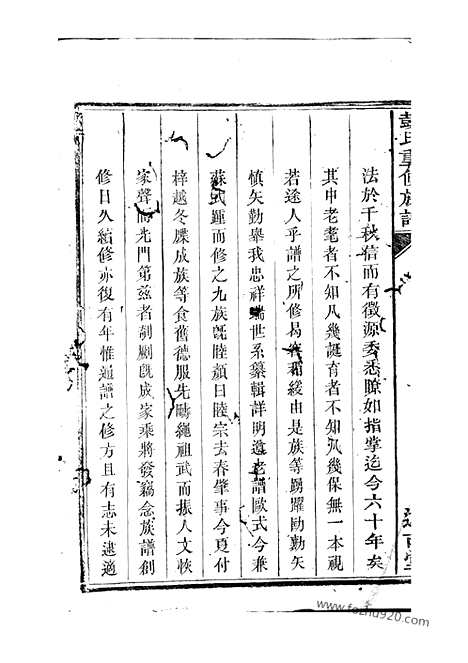 彭氏重修族譜
法於千秋信而有徵源委悉瞭如指掌迄今六十年矣
其中老耄者不知凡幾誕育者不知凡幾保無一本視
若途人乎譜之所修曷容稍緩由是族等踴躍勷勤矢
慎矢勤舉我忠祥端世系纂輯詳明遵老譜歐式今兼
蘇式踵而修之九族既睦顏曰睦宗去春肇事今夏付
梓越冬牒成族等食舊德服先疇繩祖武而振人文恢
家聲而先門第茲者剞劂既成家乘將發竊念族譜創
修日久續修亦復有年惟通譜之修方且有志未逮適
www.fozhu920.com